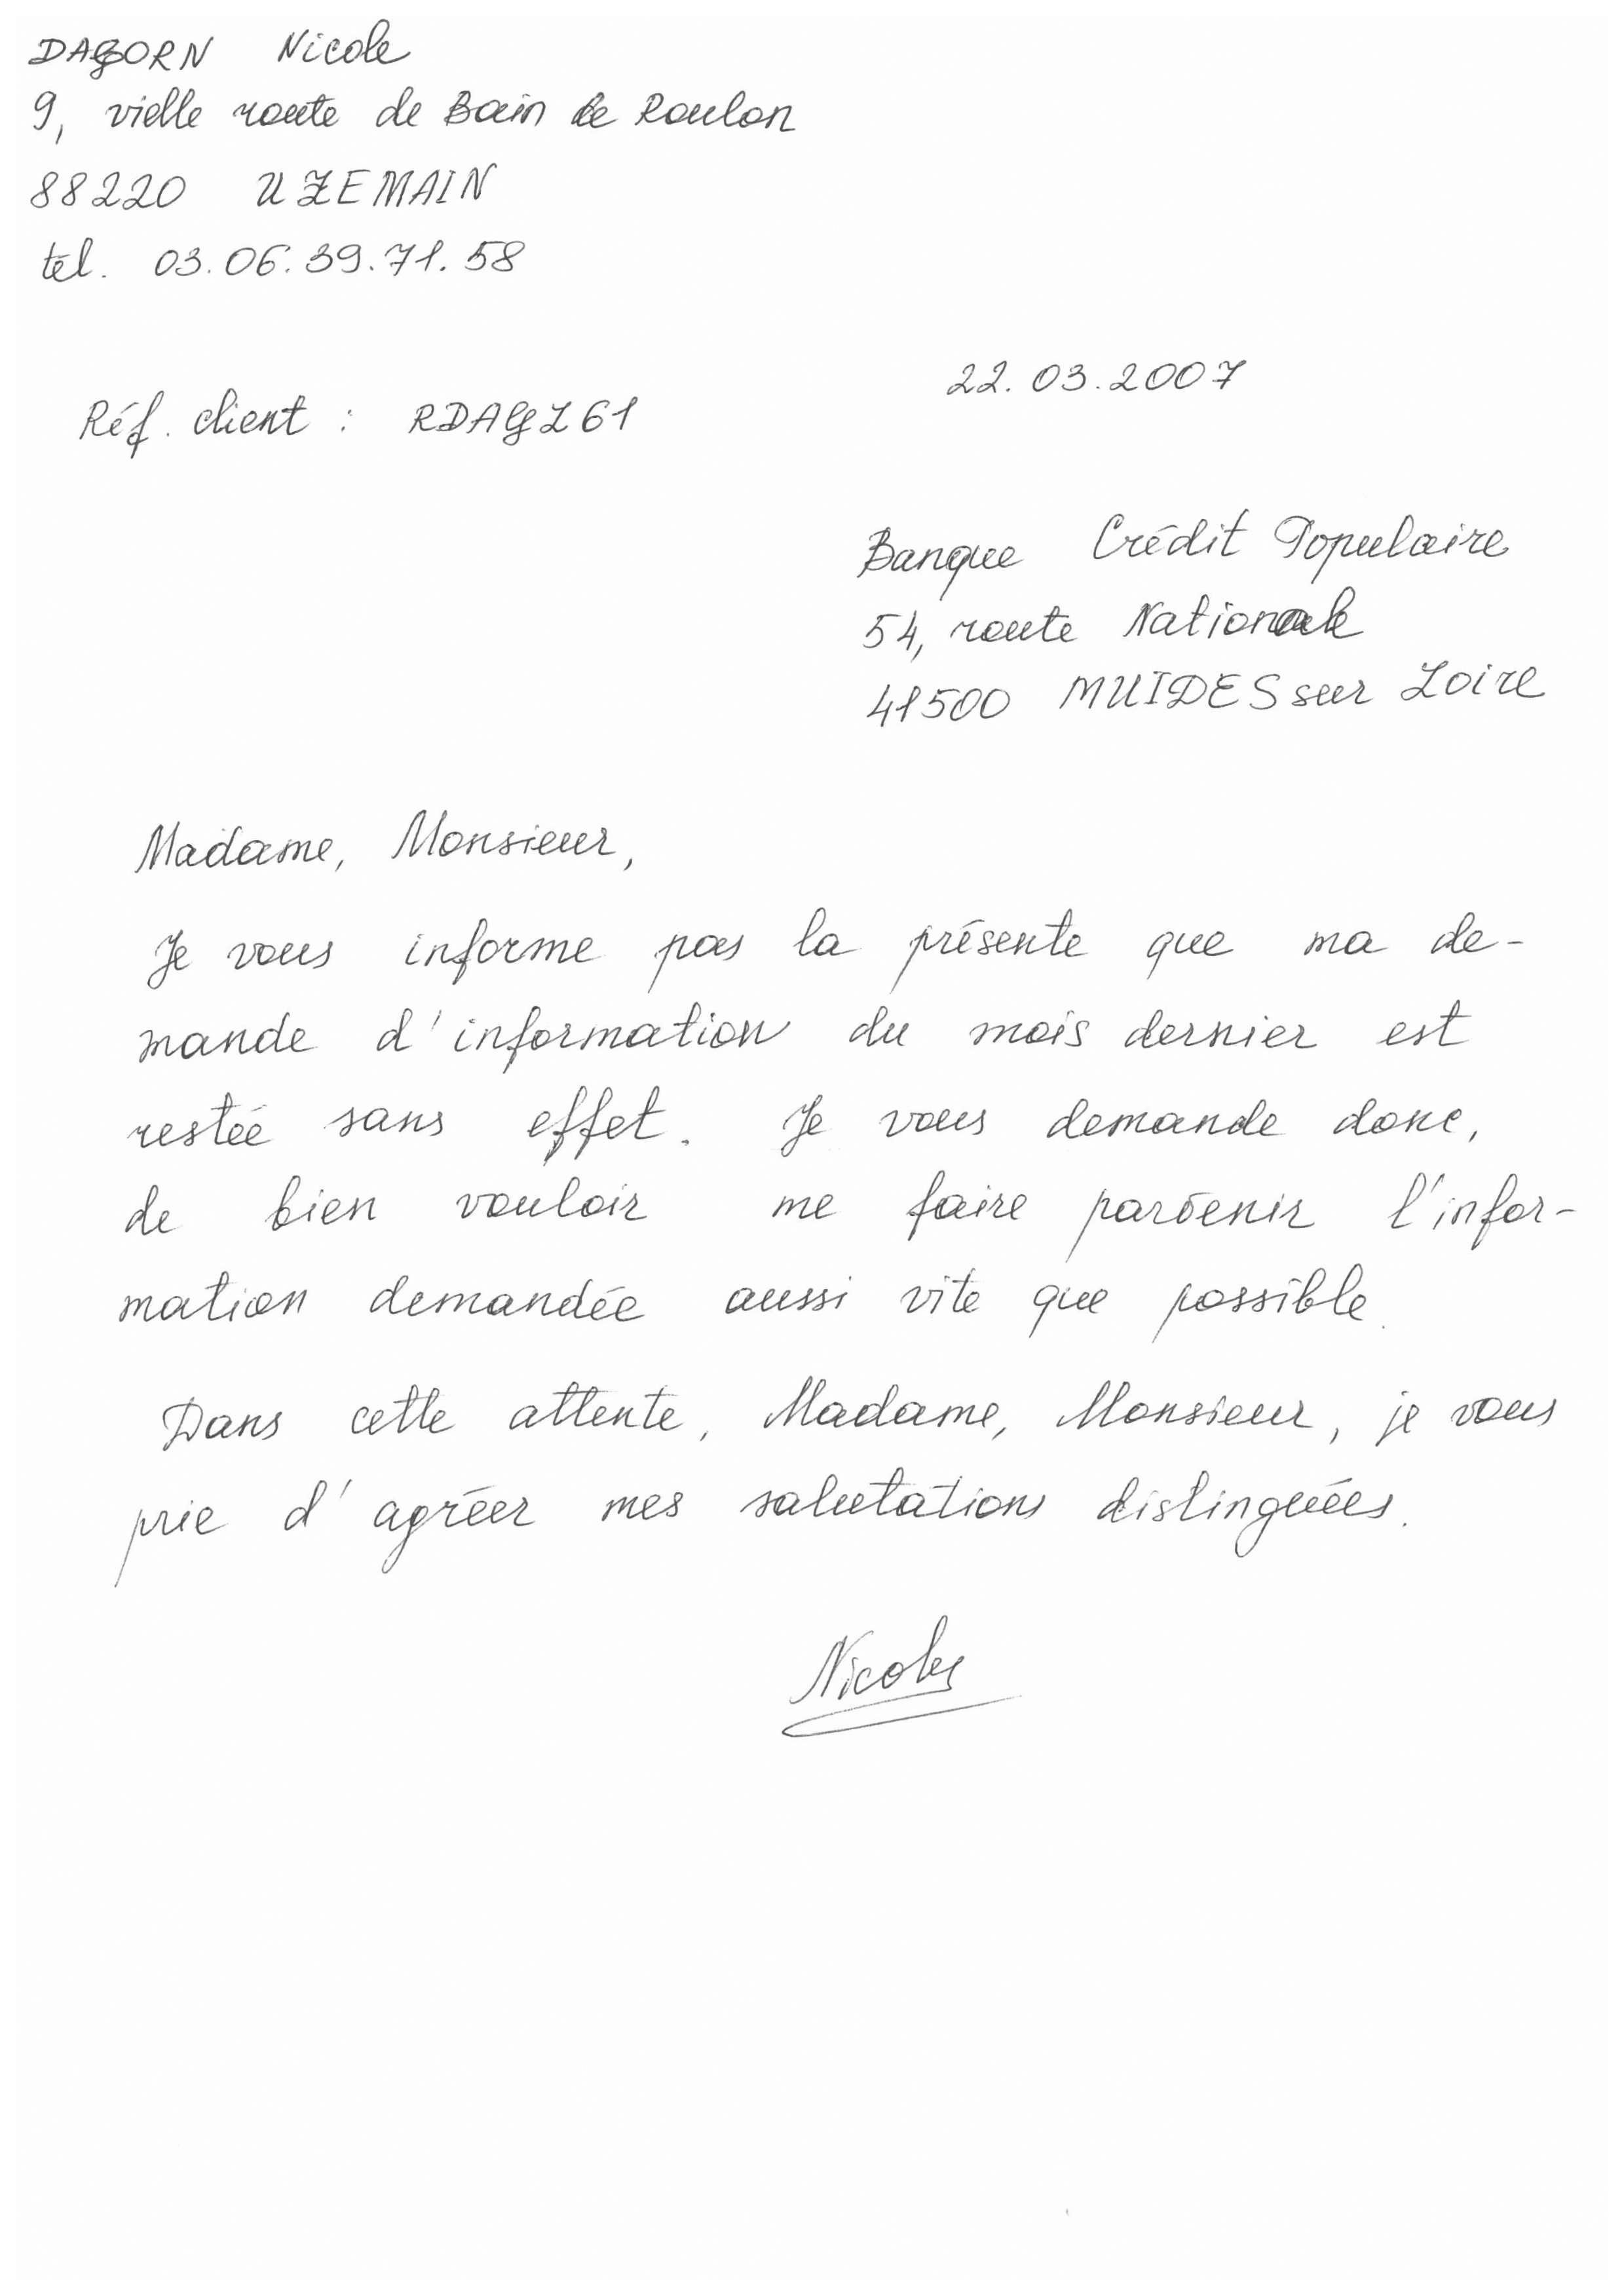 DAGORN Nicole
9, vielle route de Bain de Roulon
88220 UZEMAIN
tél. 03.06.39.71.58
22.03.2007
Réf. client : RDAGZ61
Banque Crédit Populaire
54, route Nationale
41500 MUIDES sur Loire
Madame, Monsieur,
Je vous informe pas la présente que ma de-
mande d'information du mois dernier est
restée sans effet. Je vous demande donc,
de bien vouloir me faire parvenir l'infor-
mation demandée aussi vite que possible.
Dans cette attente, Madame, Monsieur, je vous
prie d'agréer mes salutations distinguées.
Nicole